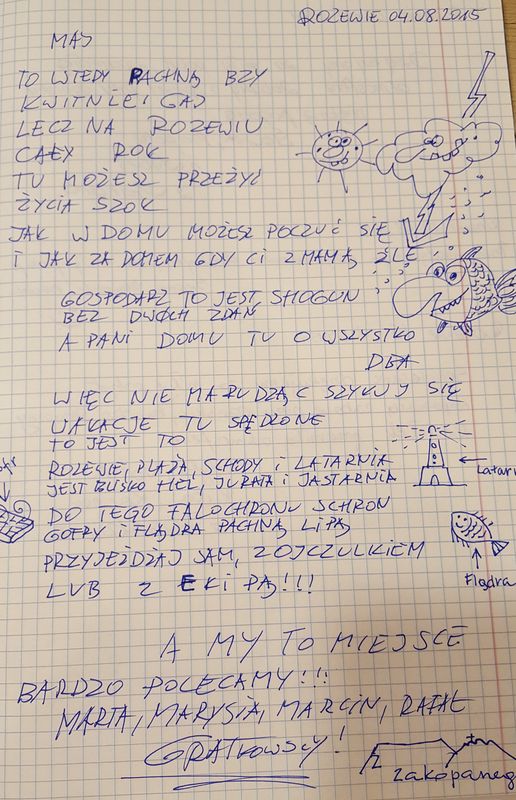 ROZEWIE 04.08.2015
MAJ
TO WTEDY PACHNĄ BZY
KWITNIE I GAJ
LECZ NA ROZEWIU
CAŁY ROK
TU MOŻESZ PRZEŻYĆ
ŻYCIA SZOK
JAK W DOMU MOŻESZ POCZUĆ SIĘ
I JAK ZA DOMEM GDY CI Z MAMĄ ŹLE
GOSPODARZ TO JEST SHOGUN
BEZ DWÓCH ZDAŃ
A PANI DOMU TU O WSZYSTKO
DBA
WIĘC NIE MARUDZĄC SZYKUJ SIĘ
WAKACJE TU SPĘDZONE
TO JEST TO
ROZEWIE, PLAŻA, SCHODY I LATARNIA
JEST BLISKO HEL, JURATA I JASTARNIA
Latarn
DO TEGO FALOCHRONU SCHRON
GOFRY I FLĄDRA PACHNĄ LIPĄ
PRZYJEŻDŻAJ SAM, Z OJCZULKIEM
Flądra
LUB Z EKIPĄ!!!
A MY TO MIEJSCE
BARDZO POLECAMY!!!
MARTA, MARYSIA, MARCIN, RAFAŁ
GRATKOWSCY!
zakopaneg